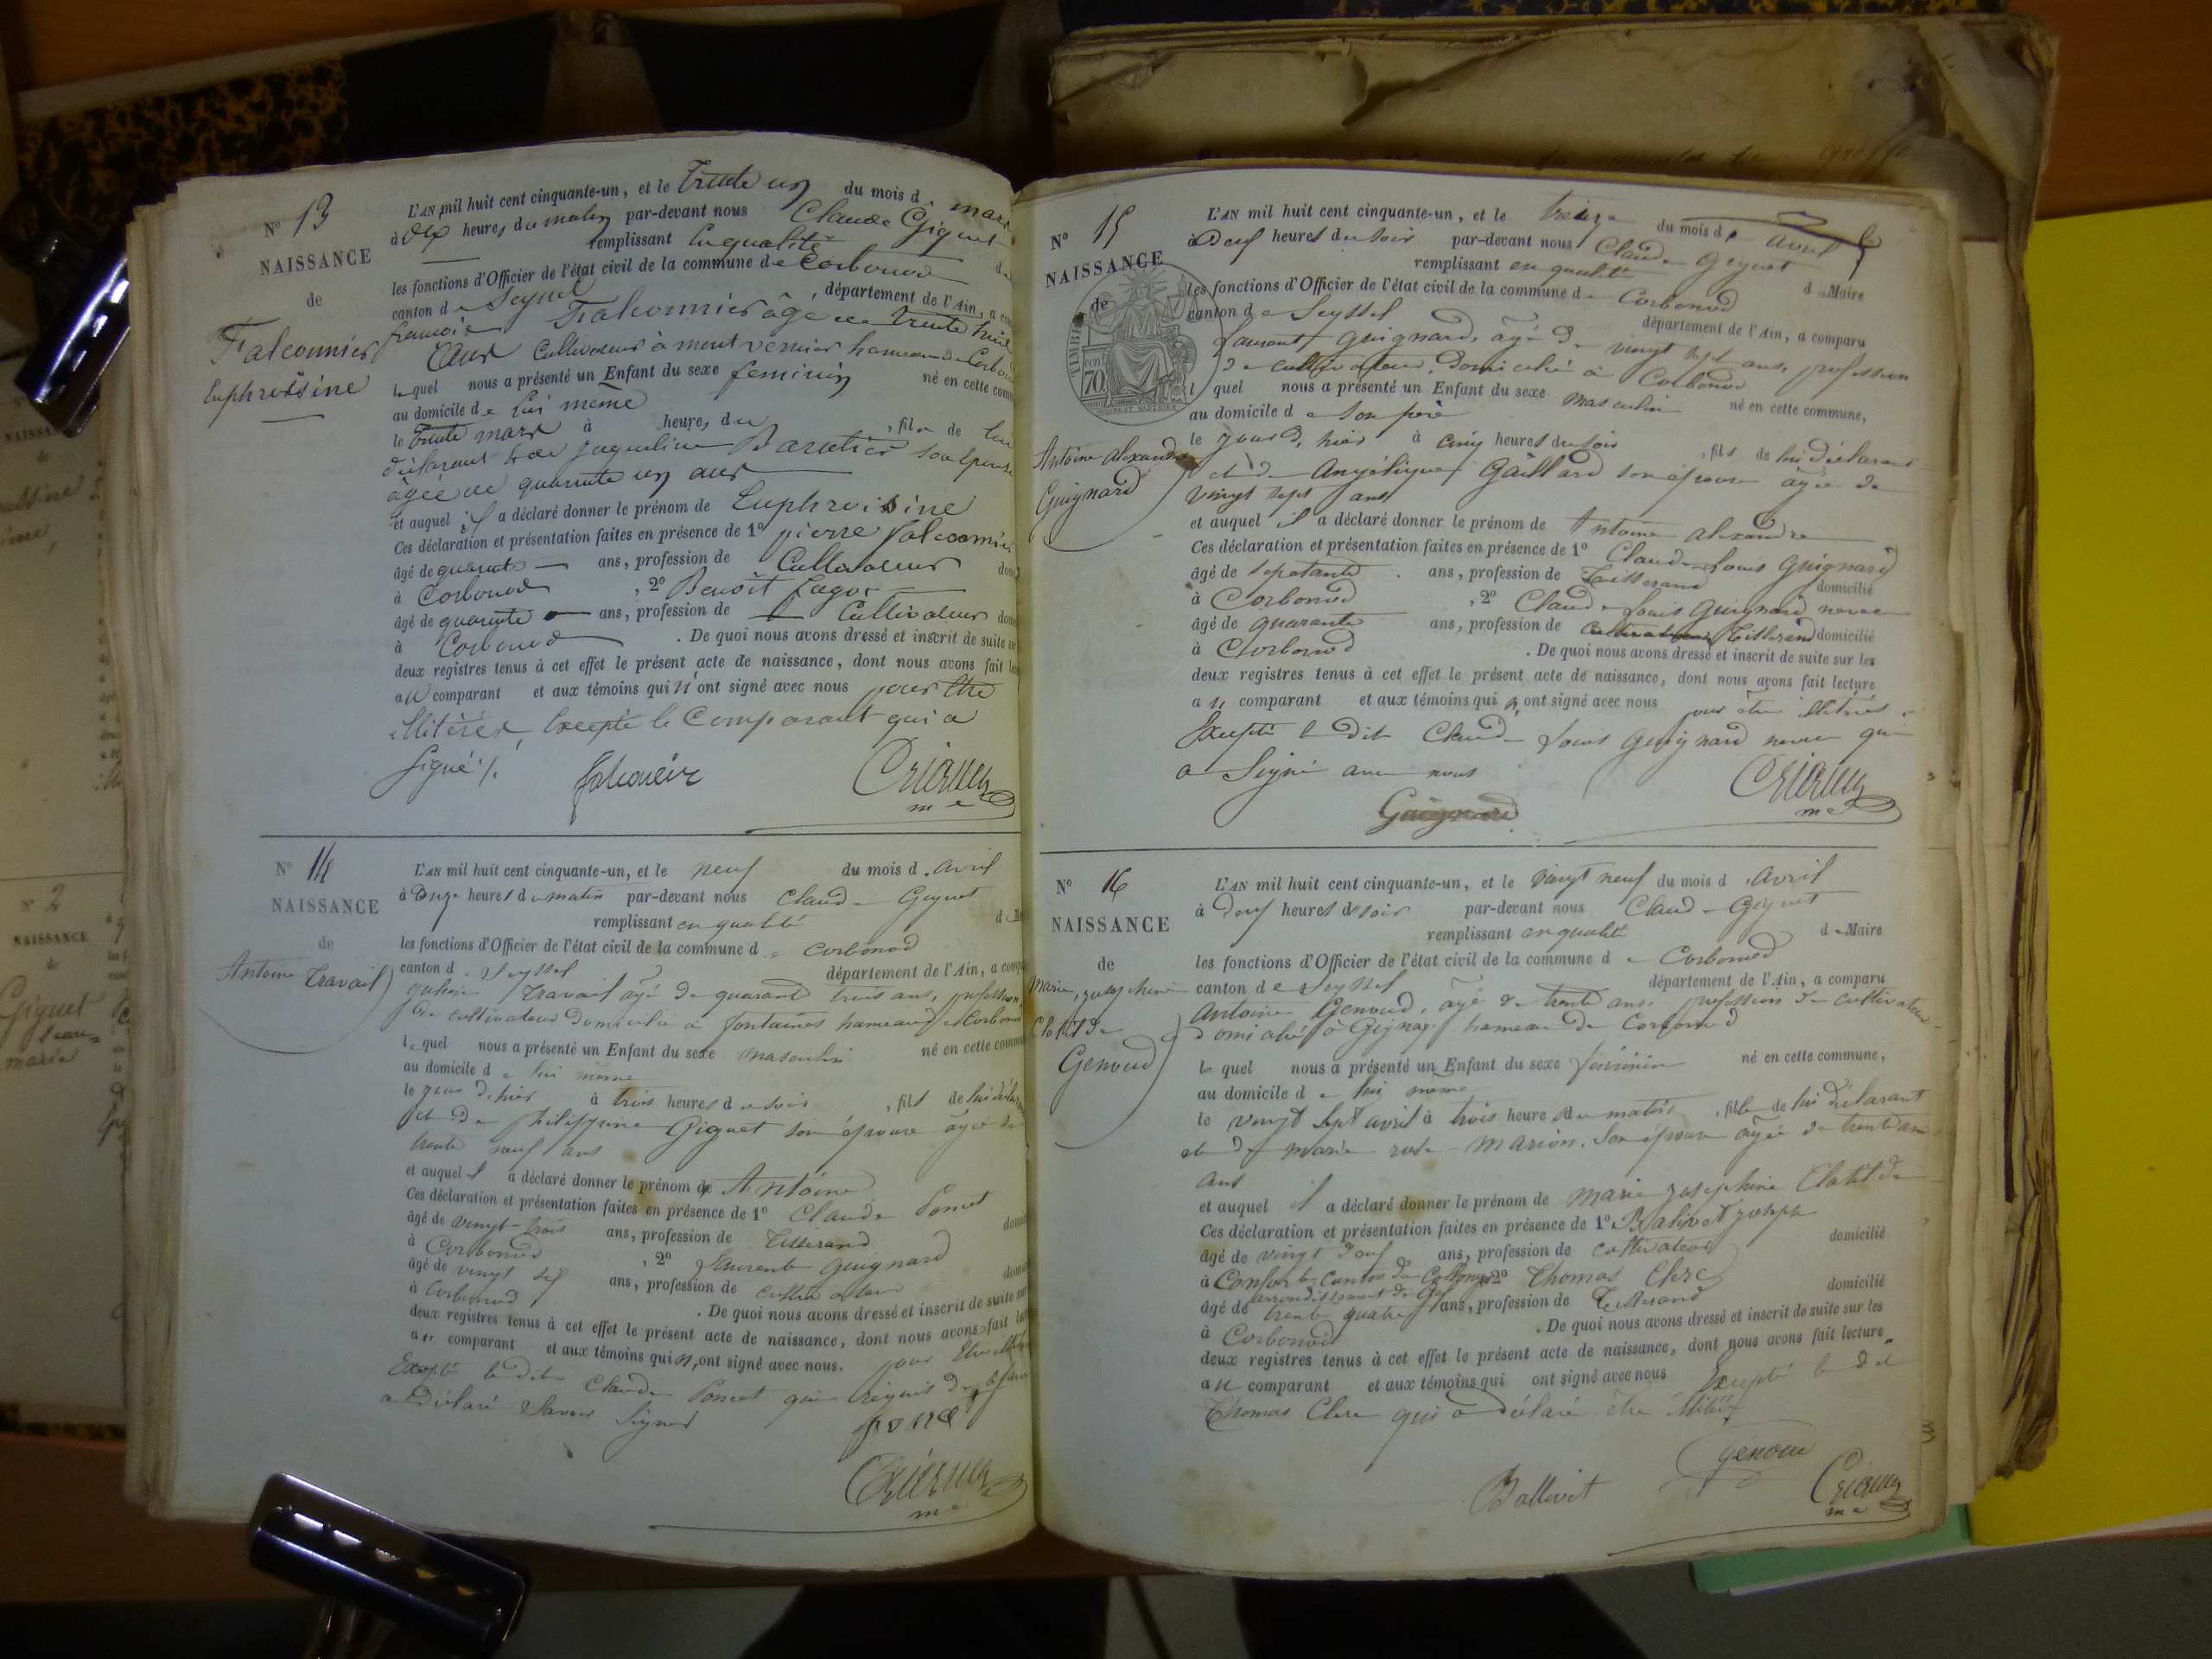 N° 13
NAISSANCE
de
Falconnier
Euphroisine
L'AN mil huit cent cinquante-un, et le trente un du mois de mars
à dix heures du matin par-devant nous Claude Giguet
remplissant en qualité de
les fonctions d'Officier de l'état civil de la commune de Corbonod
canton de Seyssel département de l'Ain, a
françois Falconnier âgé de trente huit
ans Cultivateur à hameau de
lequel nous a présenté un Enfant du sexe feminin né en cette
au domicile de lui même
le trente mars à heures du , fille de lui
déclarant et de jaqueline son épouse
âgée de quarante un ans
et auquel il a déclaré donner le prénom de Euphroisine
Ces déclaration et présentation faites en présence de 1° pierre falconnier
âgé de quarante ans, profession de Cultivateur
à Corbonod , 2° Benoît
âgé de quarante ans, profession de Cultivateur
à Corbonod . De quoi nous avons dressé et inscrit de suite
deux registres tenus à cet effet le présent acte de naissance, dont nous avons fait
au comparant et aux témoins qui n'ont signé avec nous pour être
illitérés, Excepté le Comparant qui a
signé /.
me
N° 14
NAISSANCE
de
Antoine Travail
L'AN mil huit cent cinquante-un, et le neuf du mois d avril
à onze heures du matin par-devant nous Claude Giguet
remplissant en qualité
les fonctions d'Officier de l'état civil de la commune de Corbonod
canton de Seyssel département de l'Ain, a
Travail âgé de quarante trois ans, profession
de cultivateur domicilié à fontaines hameau de
lequel nous a présenté un Enfant du sexe masculin né en cette
au domicile de lui même
le jour d'hier à trois heures du soir , fils de lui
et de philippine Giguet son épouse âgée de
trente neuf ans
et auquel il a déclaré donner le prénom de Antoine
Ces déclaration et présentation faites en présence de 1° Claude Poncet
âgé de vingt-trois ans, profession de Tisserand
à Corbonod , 2° Laurent Guignard
âgé de vingt sept ans, profession de cultivateur
à Corbonod . De quoi nous avons dressé et inscrit de suite
deux registres tenus à cet effet le présent acte de naissance, dont nous avons fait
au comparant et aux témoins qui n'ont signé avec nous. pour
Excepté le dit Claude Poncet qui requis de
a déclaré savoir signer
me
N° 15
NAISSANCE
de
TIMBRE
70
Antoine alexandre
Guignard
L'AN mil huit cent cinquante-un, et le treize du mois de avril
à Deux heures du soir par-devant nous Claude Giguet
remplissant en qualité de Maire
les fonctions d'Officier de l'état civil de la commune de Corbonod
canton de Seyssel département de l'Ain, a comparu
Laurent Guignard, âgé de vingt sept ans, profession
de cultivateur, domicilié à Corbonod
l quel nous a présenté un Enfant du sexe masculin né en cette commune,
au domicile de son père
le jour d'hier à cinq heures du soir , fils de lui déclarant
et de Angélique Gaillard son épouse âgée de
vingt sept ans
et auquel il a déclaré donner le prénom de Antoine alexandre
Ces déclaration et présentation faites en présence de 1° Claude Louis Guignard
âgé de septante ans, profession de Tisserand domicilié
à Corbonod , 2° Claude Louis Guignard neveu
âgé de quarante ans, profession de cultivateur Tisserand domicilié
à Corbonod . De quoi nous avons dressé et inscrit de suite sur les
deux registres tenus à cet effet le présent acte de naissance, dont nous avons fait lecture
au comparant et aux témoins qui n'ont signé avec nous pour être
Excepté le dit Claude Louis Guignard neveu qui
a signé avec nous
Guignard
me
N° 16
NAISSANCE
de
Marie, josephine
Clotilde
Genoud
L'AN mil huit cent cinquante-un, et le vingt neuf du mois d avril
à deux heures du soir par-devant nous Claude Giguet
remplissant en qualité de Maire
les fonctions d'Officier de l'état civil de la commune de Corbonod
canton de Seyssel département de l'Ain, a comparu
Antoine Genoud, âgé de trente ans, profession de cultivateur
domicilié à Gignay hameau de Corbonod
lequel nous a présenté un Enfant du sexe féminin né en cette commune,
au domicile de lui même
le vingt sept avril à trois heures du matin , fille de lui déclarant
et de marie rose Marion son épouse âgée de trente
ans
et auquel il a déclaré donner le prénom de marie josephine Clotilde
Ces déclaration et présentation faites en présence de 1° Balivet joseph
âgé de vingt neuf ans, profession de cultivateur domicilié
à Confort canton de Collonges 2° Thomas Clerc
arrondissement de Gex
âgé de trente quatre ans, profession de Tisserand domicilié
à Corbonod . De quoi nous avons dressé et inscrit de suite sur les
deux registres tenus à cet effet le présent acte de naissance, dont nous avons fait lecture
au comparant et aux témoins qui ont signé avec nous Excepté le dit
Thomas Clerc qui a déclaré être
genoud
Ballivet
me
N° 2
NAISSANCE
de
Giguet
jean
marie